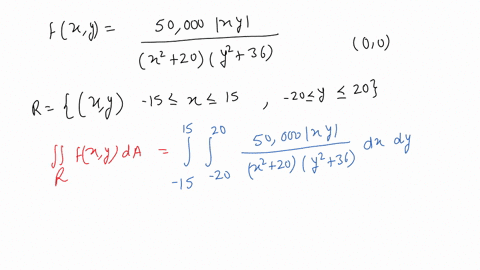 f(x,y) = 50,000 |xy| / (x²+20)(y²+36) (0,0)
R = {(x,y) -15 ≤ x ≤ 15 , -20 ≤ y ≤ 20}
∬_R f(x,y) dA = ∫_{-15}^{15} ∫_{-20}^{20} 50,000 |xy| / (x²+20)(y²+36) dx dy